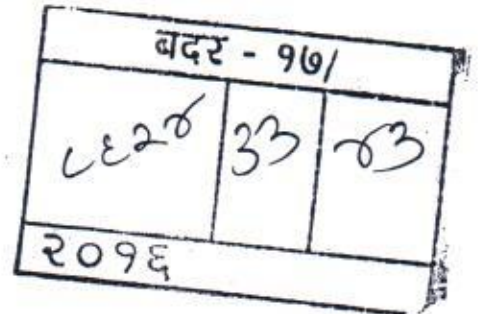 बदर - १७/
८६२४ ३३ ४३
२०१६